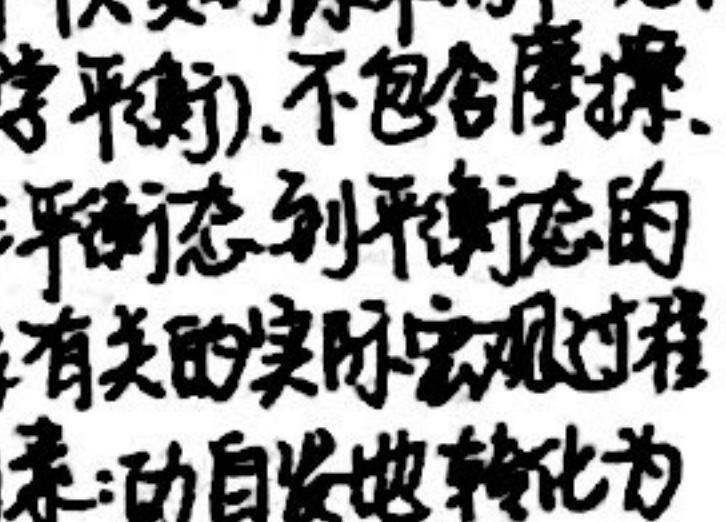 学平衡).不包含摩擦.
平衡态到平衡态的
有关的实际宏观过程
表:功自发地转化为